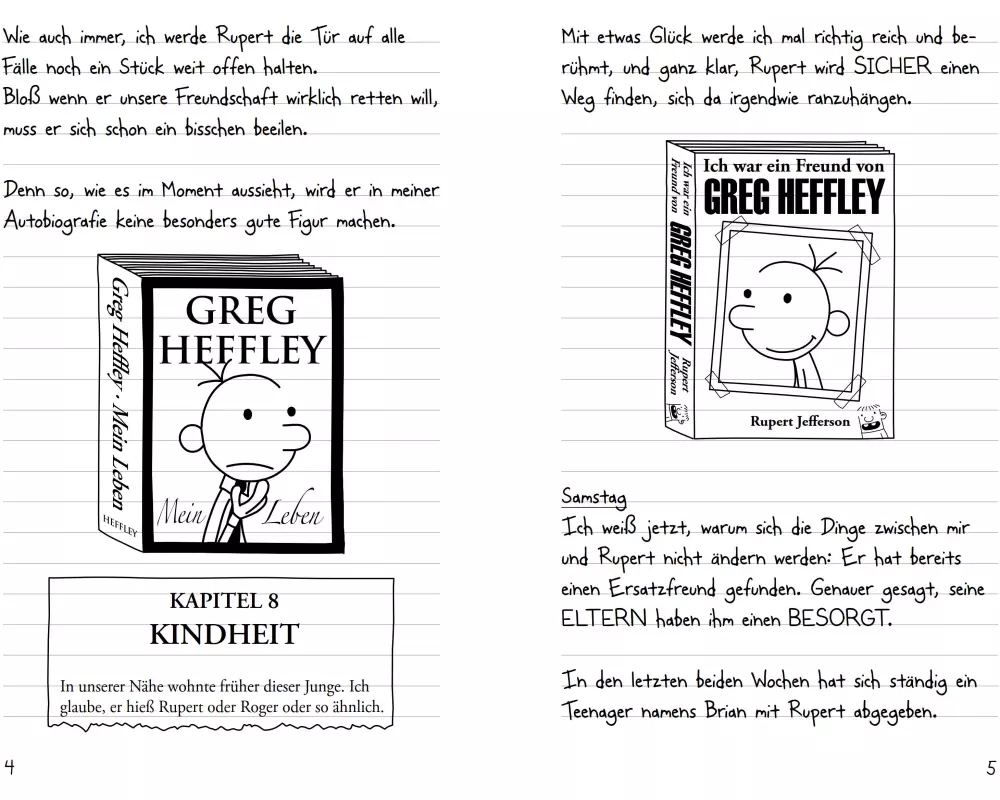 Wie auch immer, ich werde Rupert die Tür auf alle
Fälle noch ein Stück weit offen halten.
Bloß wenn er unsere Freundschaft wirklich retten will,
muss er sich schon ein bisschen beeilen.
Denn so, wie es im Moment aussieht, wird er in meiner
Autobiografie keine besonders gute Figur machen.
Greg Heffley · Mein Leben
HEFFLEY
GREG
HEFFLEY
Mein Leben
KAPITEL 8
KINDHEIT
In unserer Nähe wohnte früher dieser Junge. Ich
glaube, er hieß Rupert oder Roger oder so ähnlich.
4
Mit etwas Glück werde ich mal richtig reich und be-
rühmt, und ganz klar, Rupert wird SICHER einen
Weg finden, sich da irgendwie ranzuhängen.
Ich war ein
Freund von
GREG HEFFLEY
Rupert
Jefferson
Ich war ein Freund von
GREG HEFFLEY
Rupert Jefferson
Samstag
Ich weiß jetzt, warum sich die Dinge zwischen mir
und Rupert nicht ändern werden: Er hat bereits
einen Ersatzfreund gefunden. Genauer gesagt, seine
ELTERN haben ihm einen BESORGT.
In den letzten beiden Wochen hat sich ständig ein
Teenager namens Brian mit Rupert abgegeben.
5